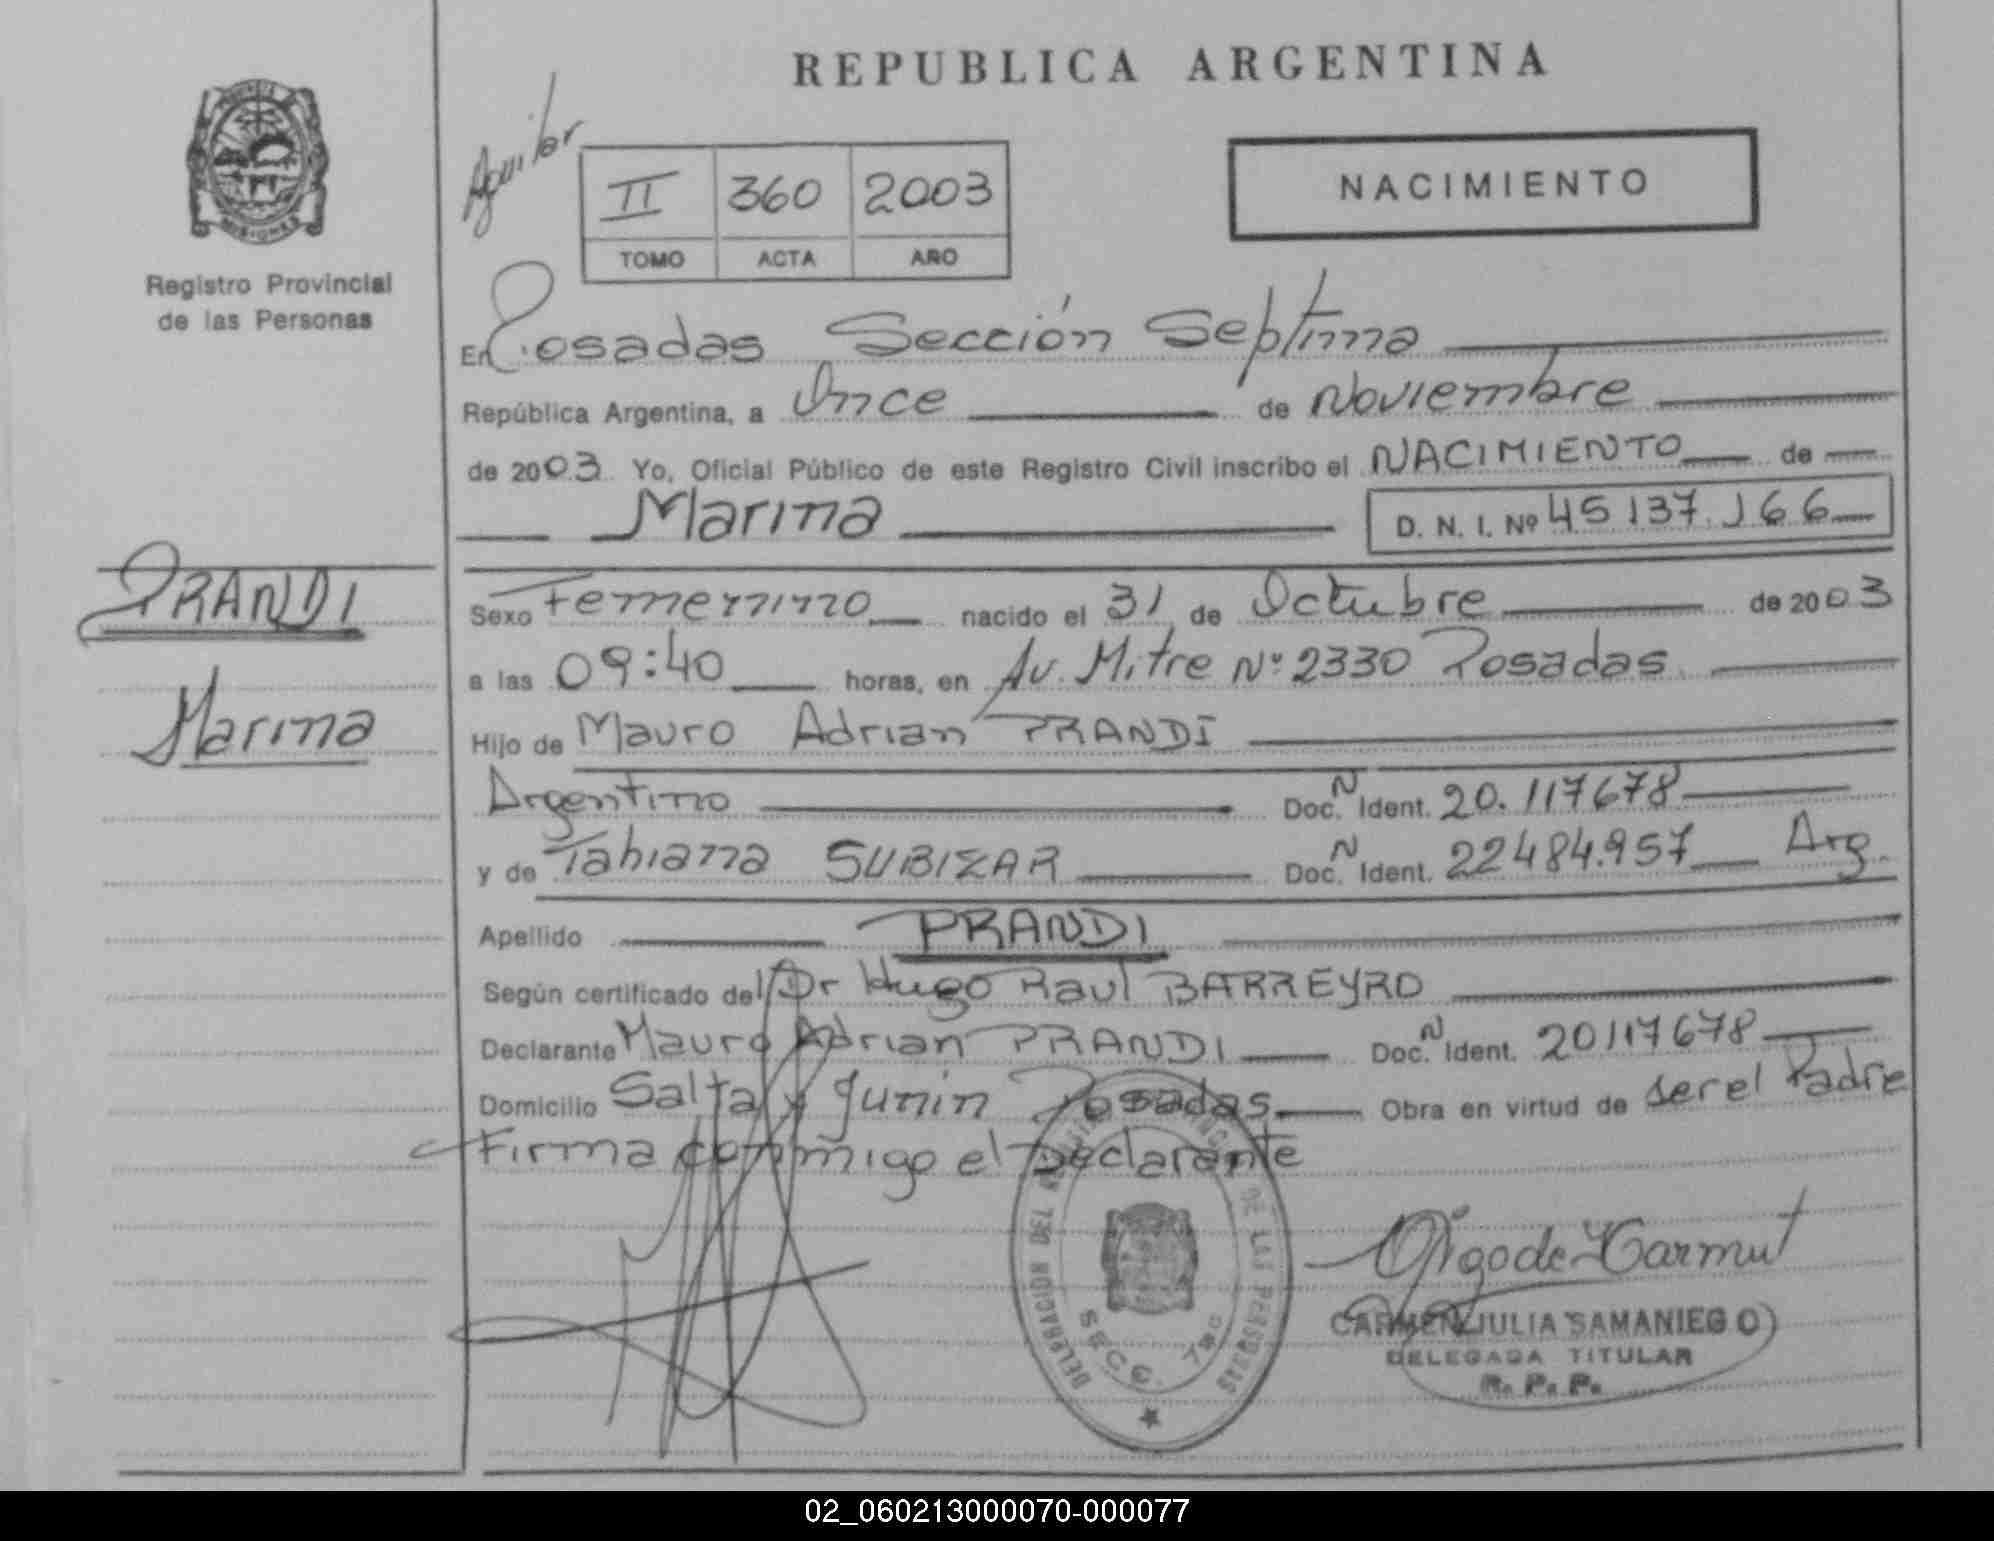 REPUBLICA ARGENTINA
PROVINCIA
MISIONES
Registro Provincial
de las Personas
Aguilar
II 360 2003
TOMO ACTA AÑO
NACIMIENTO
En Posadas Sección Septima
República Argentina, a Once de Noviembre
de 2003. Yo, Oficial Público de este Registro Civil inscribo el NACIMIENTO de
Marina D. N. I. Nº 45137.166
PRANDI
Marina
Sexo Femenino nacido el 31 de Octubre de 2003
a las 09:40 horas, en Av. Mitre Nº 2330 Posadas.
Hijo de Mauro Adrian PRANDI
Argentino Doc. N Ident. 20.117678
y de Tahiana SUBIZAR Doc. N Ident. 22484.957 Arg.
Apellido PRANDI
Según certificado del Dr Hugo Raul BARREYRO
Declarante Mauro Adrian PRANDI Doc. N Ident. 20117678
Domicilio Salta y Junin Posadas Obra en virtud de ser el Padre
Firma conmigo el Declarante
DELEGACION DEL REGISTRO PROVINCIAL DE LAS PERSONAS
SECC. 7ma
CARMEN JULIA SAMANIEGO
DELEGADA TITULAR
R. P. P.
02_060213000070-000077